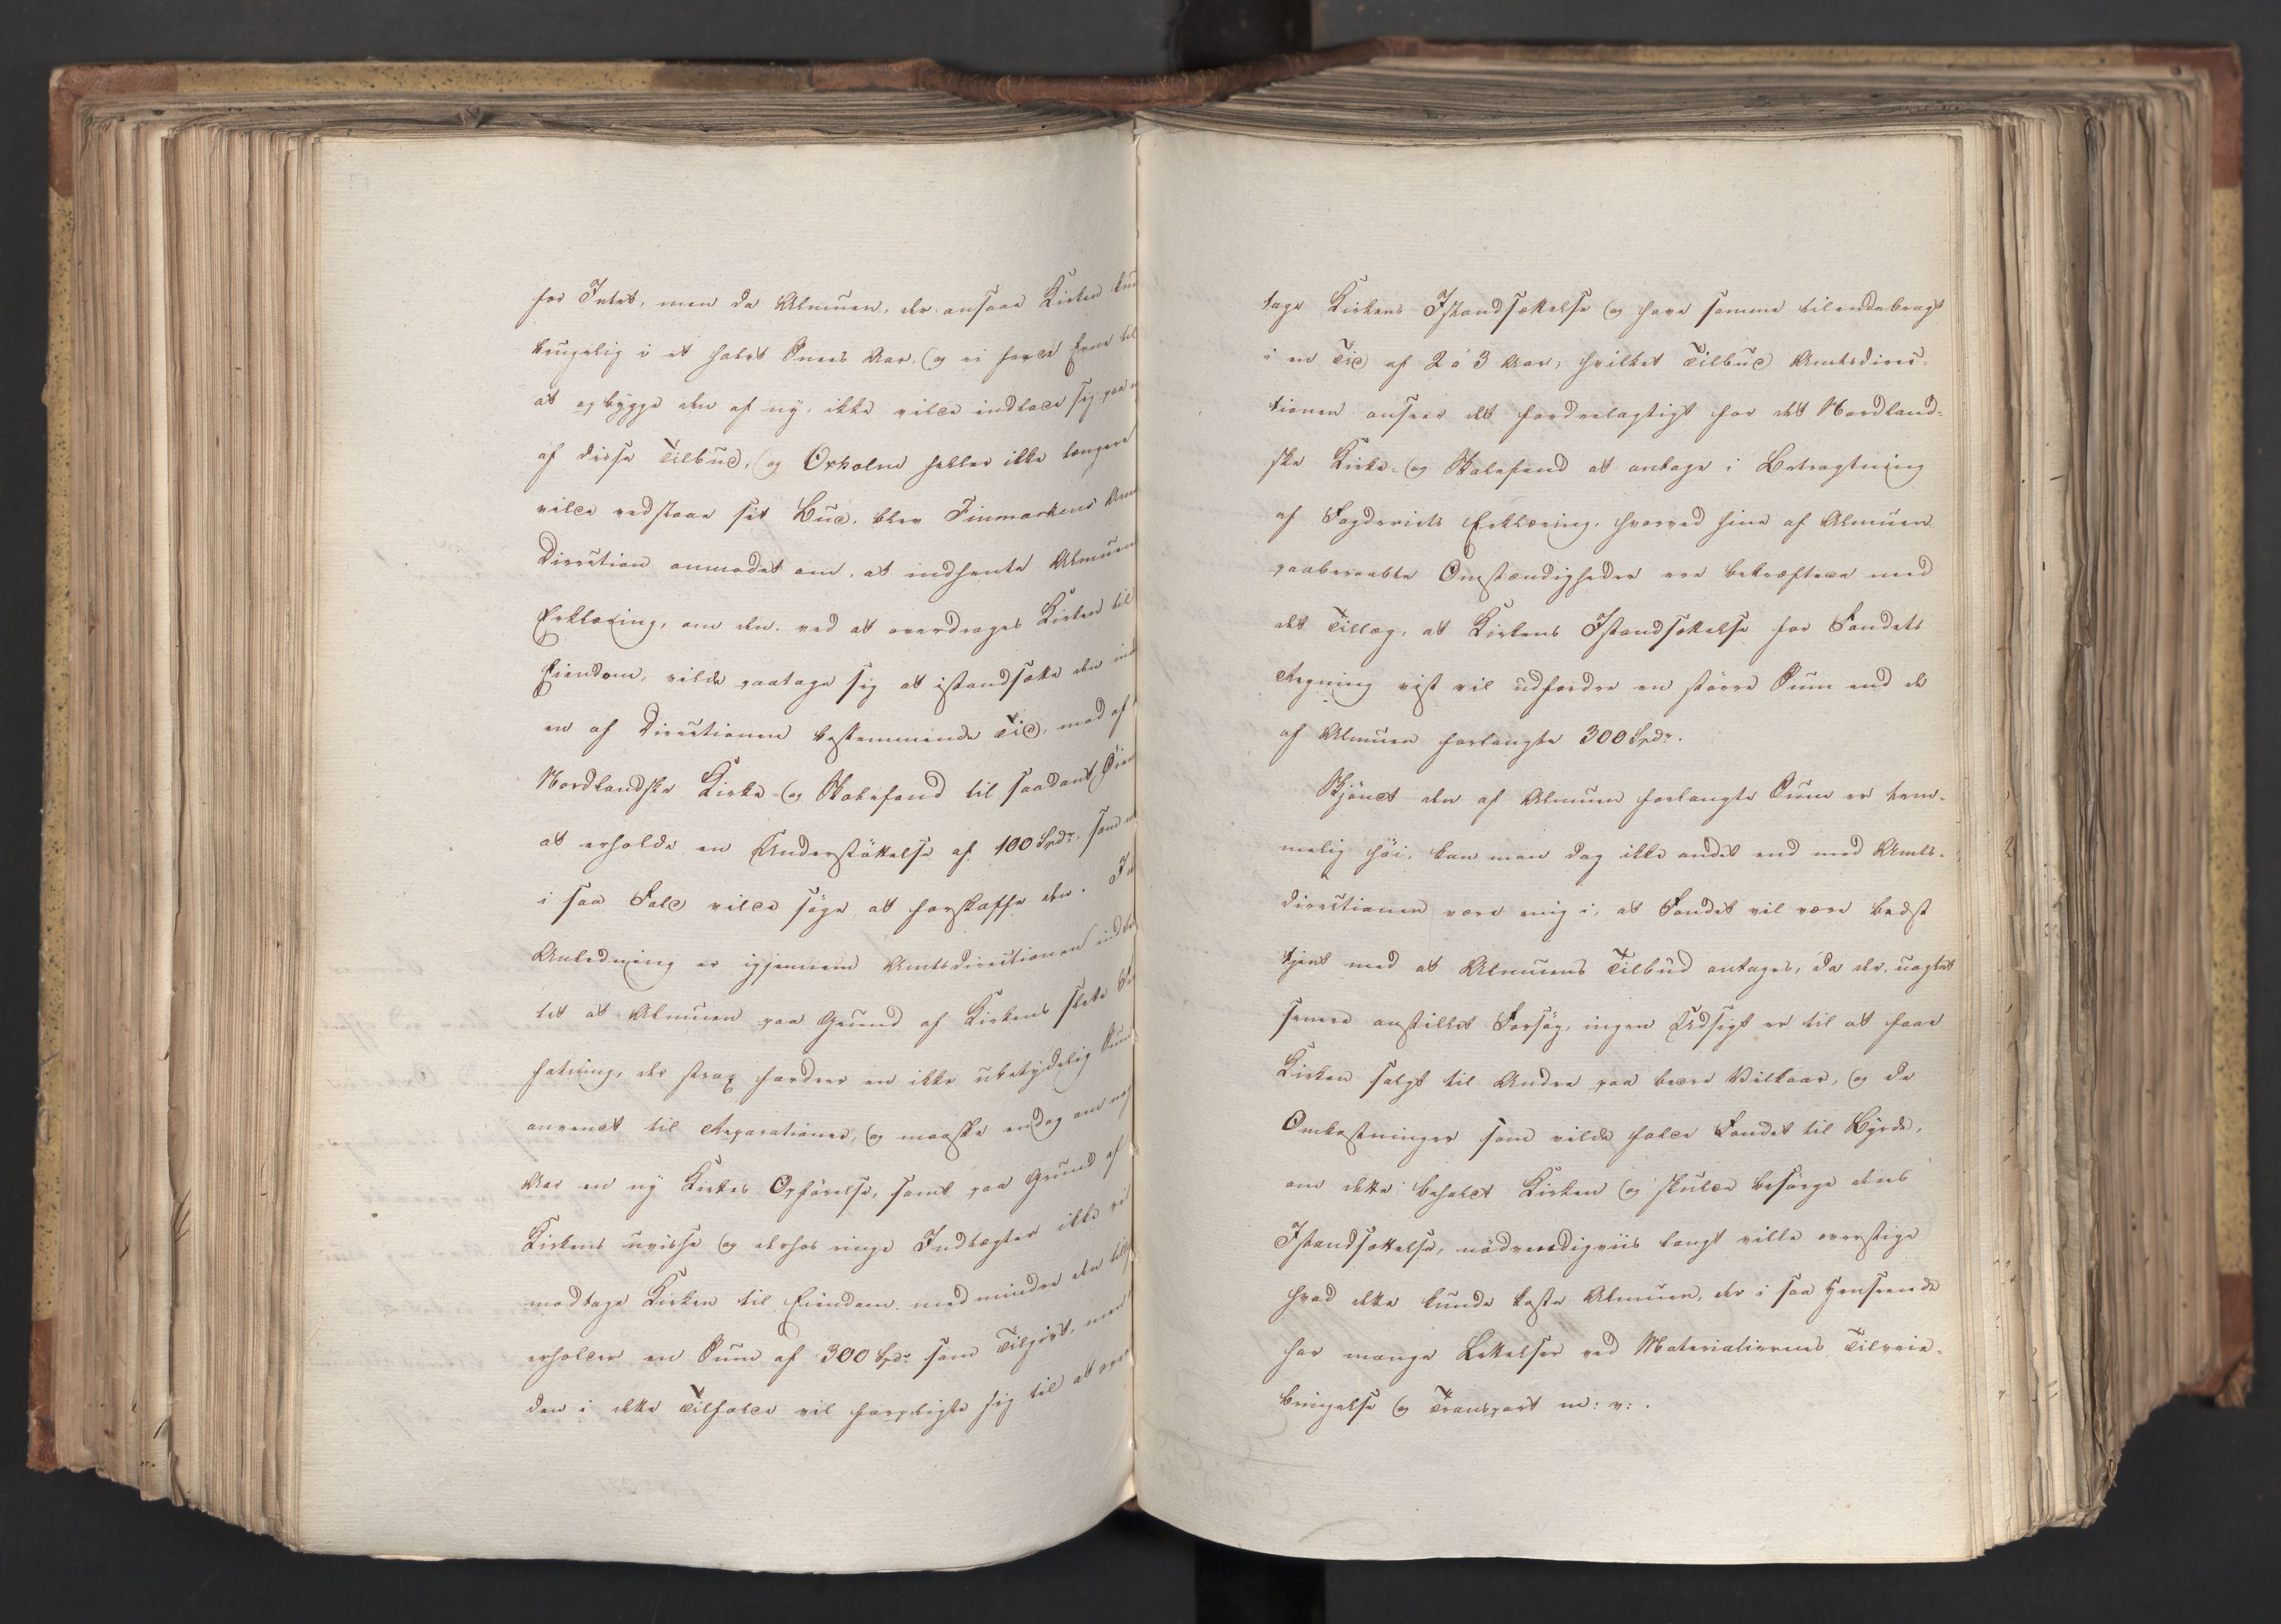 for Intet, men da Almuen, der ansaae Kirken kun
brugelig i et halvt Snees Aar, og ei havde Evne til
at opbygge den af ny, ikke vilde indlade sig paa
af disse Tilbud, og Oxholm heller ikke længere
vilde vedstaae sit Bud, blev Finmarkens
Direction anmodet om, at indhente Almuen
Erklæring, om den, ved at overdrages Kirken til
Eiendom, vilde paatage sig at istandsætte den
en af Directionen bestemmende Tid, mod af
Nordlandske Kirke- og Skolefond til saadant
at erholde en Understöttelse af 100 Spdr, som
i saa Fald vilde söge at forskaffe den.
Anledning er igjennem Amtsdirectionen
tet at Almuen paa Grund af Kirkens slette
fatning, der strax fordrer en ikke ubetydelig Sum
anvendt til Reparationer, og maaskee endog om
Aar en ny Kirkes Opförelse, samt paa Grund af
Kirkens uvisse og derhos ringe Indtægter ikke
modtage Kirken til Eiendom med mindre den
erholder en Sum af 300 Spdr som Tilgivt, men
den i dette Tilfælde vil forpligte sig til at
tage Kirkens Istandsættelse og have samme tilendebragt
i en Tid af 2 á 3 Aar, hvilket Tilbud Amtsdirec-
tionen anseer det fordeelagtigt for det Nordland-
ske Kirke- og Skolefond at antage i Betragtning
af Fogderiets Erklæring, hvorved hine af Almuen
paaberaabte Omstændigheder ere bekræftede med
det Tillæg, at Kirkens Istandsættelse for Fondets
Regning vist vil udfordre en större Sum end de
af Almuen forlangte 300 Spdr.
Skjöndt den af Almuen forlangte Sum er tem-
melig höi, kan man dog ikke andet end med Amts-
directionen være enig i, at Fondet vil være bedst
tjent med at Almuens Tilbud antages, da der, uagtet
senere anstillet Forsög, ingen Udsigt er til at faae
Kirken solgt til Andre paa bedre Vilkaar, og de
Omkostninger som vilde falde Fondet til Byrde,
om dette beholdt Kirken og skulde besörge dens
Istandsættelse, nödvendigviis langt ville overstige
hvad dette kunde koste Almuen, der i saa Henseende
har mange Lettelser ved Materialiernes Tilveie-
bringelse og Transport m: v: .